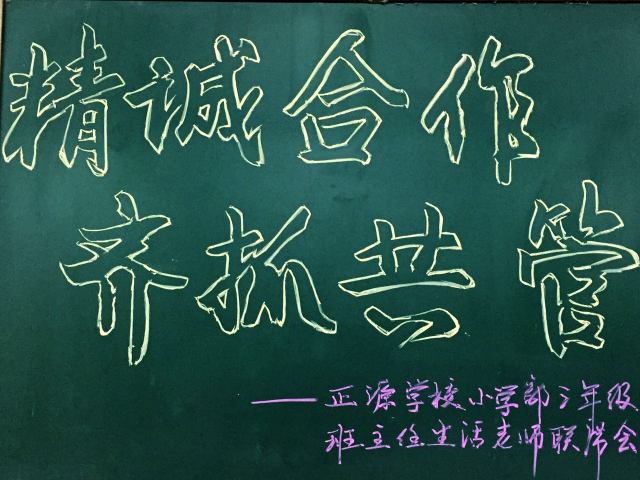 精诚合作
齐抓共管
——正源学校小学部三年级
班主任生活老师联席会